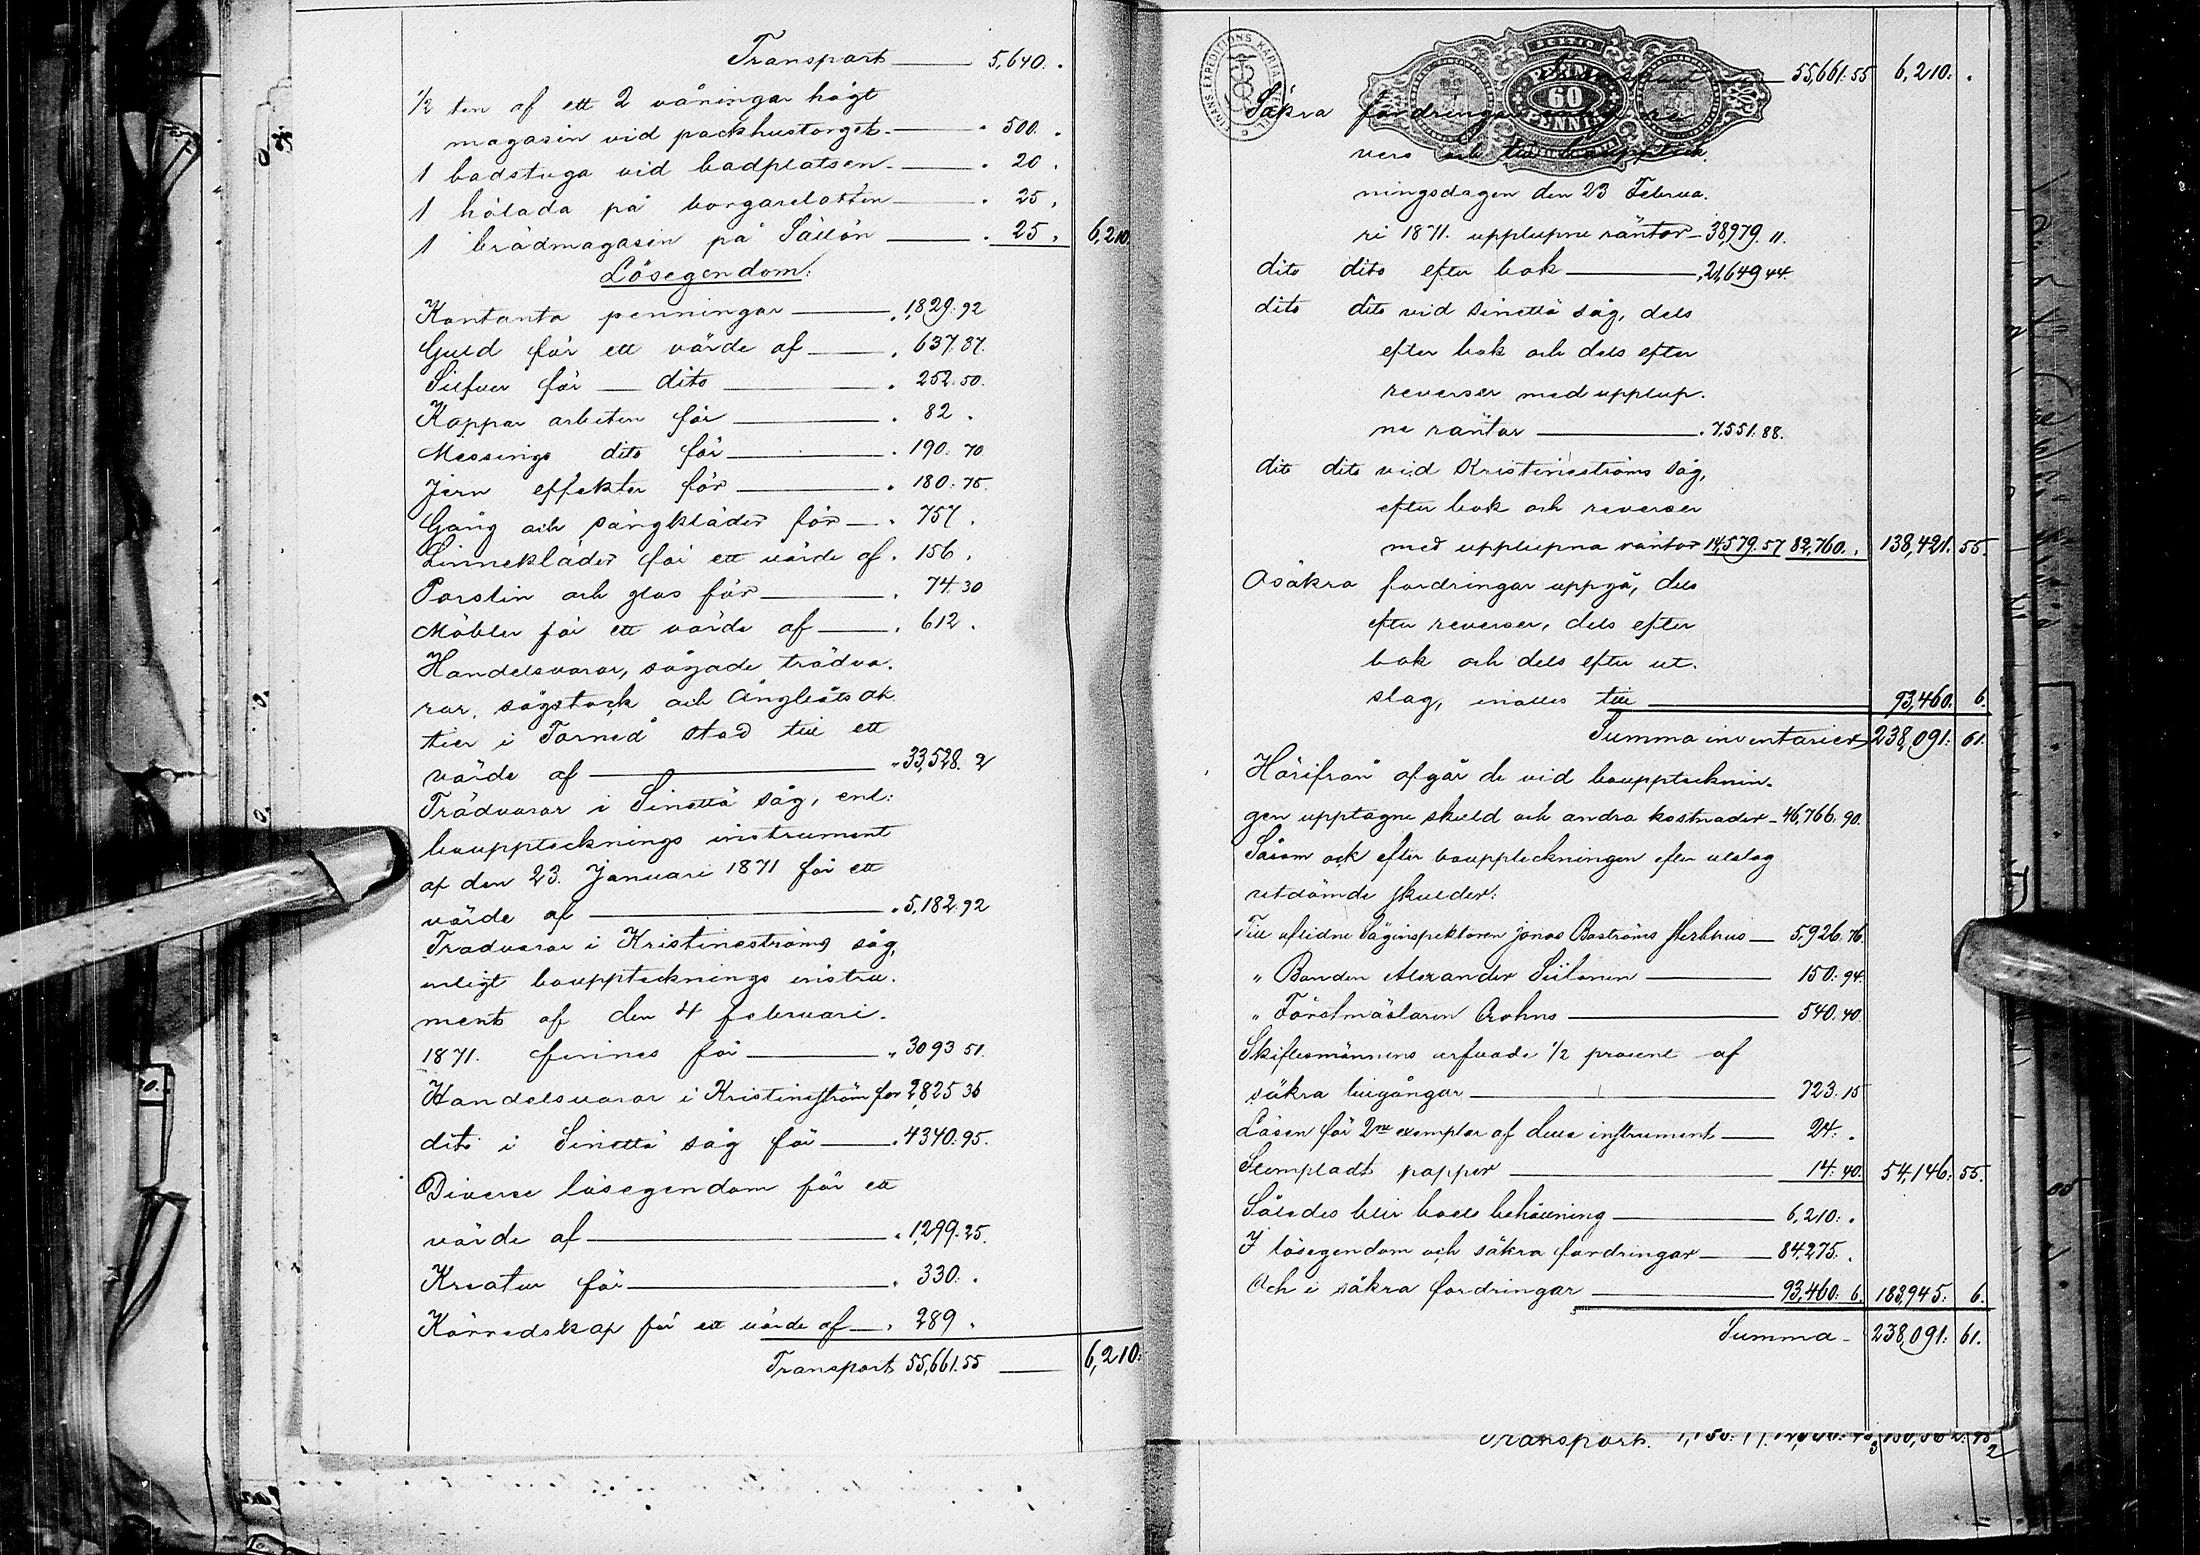 Transport 5,640. .
1/2 ten af ett 2 våningar högt
magasin vid packhustorget . 500. .
1 badstuga vid badplatsen . 20 .
1 hölada på borgarelotten . 25 .
1 brädmagasin på Sällön . 25 . 6,210.
Lösegendom:
Kontanta penningar . 1,829. 92
Guld för ett värde af . 637. 87.
Silfver för dito . 252. 50.
Koppar arbeten för . 82 .
Messings dito för . 190. 70
Jern effekter för . 180. 75.
Gång och sängkläder för . 757 .
Linnekläder för ett värde af . 156 .
Porslin och glas för . 74. 30
Möbler för ett värde af . 612 .
Handelsvaror, sågade trädva-
ror, sågstock och Ångbåts ak
tier i Torneå stad till ett
värde af . 33,528. 2
Trädvaror i Sinettä såg, enl:
boupptecknings instrument
af den 23 Januari 1871 för ett
värde af . 5,182. 92
Trädvaror i Kristineströms såg,
enligt boupptecknings instru-
ment af den 4 februari
1871. finnes för " 3093 51.
Handelsvaror i Kristineström för 2,825 36
dito i Sinettä såg för . 4340. 95.
Diverse lösegendom för ett
värde af . 1,299. 25.
Kreatur för . 330. .
Körredskap för ett värde af . 289 .
Transport 55,661. 55 6,210:
60
PENNIÄ
55,661. 55 6,210. .
Säkra fordringar
vers och till bouppteck-
ningsdagen den 23 Februa-
ri 1871. upplupne räntor 38,979. 11.
dito dito efter bok . 21,649 44.
dito dito vid Sinettä såg, dels
efter bok och dels efter
reverser med upplup-
ne räntor . 7,551. 88.
dito dito vid Kristineströms såg,
efter bok och reverser
med upplupna räntor 14,579. 57 82,760. . 138,421. 55.
Osäkra fordringar uppgå, dels
efter reverser, dels efter
bok och dels efter ut-
slag, inalles till 93,460. 6.
Summa inventarier 238,091: 61.
Härifrån afgår de vid bouppteckning-
gen upptagne skuld och andra kostnader 46,766. 90.
Såsom ock efter bouppteckningen efter utslag
utdömde skulder:
Till aflidne Såginspektoren Jonas Boströms sterbhus 5,926. 76.
" Bonden Alexander Siilonen 150. 94.
" Forstmästaren Crohns 540. 40.
Skiftesmännens arfvode 1/2 procent af
säkra tillgångar 723. 15
Lösen för 2ne exemplar af detta instrument 24. .
Stempladt papper 14. 40. 54,146. 55.
Således blir boets behållning 6,210. .
I lösegendom och säkra fordringar 84,275. .
Och i säkra fordringar 93,460. 6. 183,945. 6.
Summa 238,091. 61.
Transport.